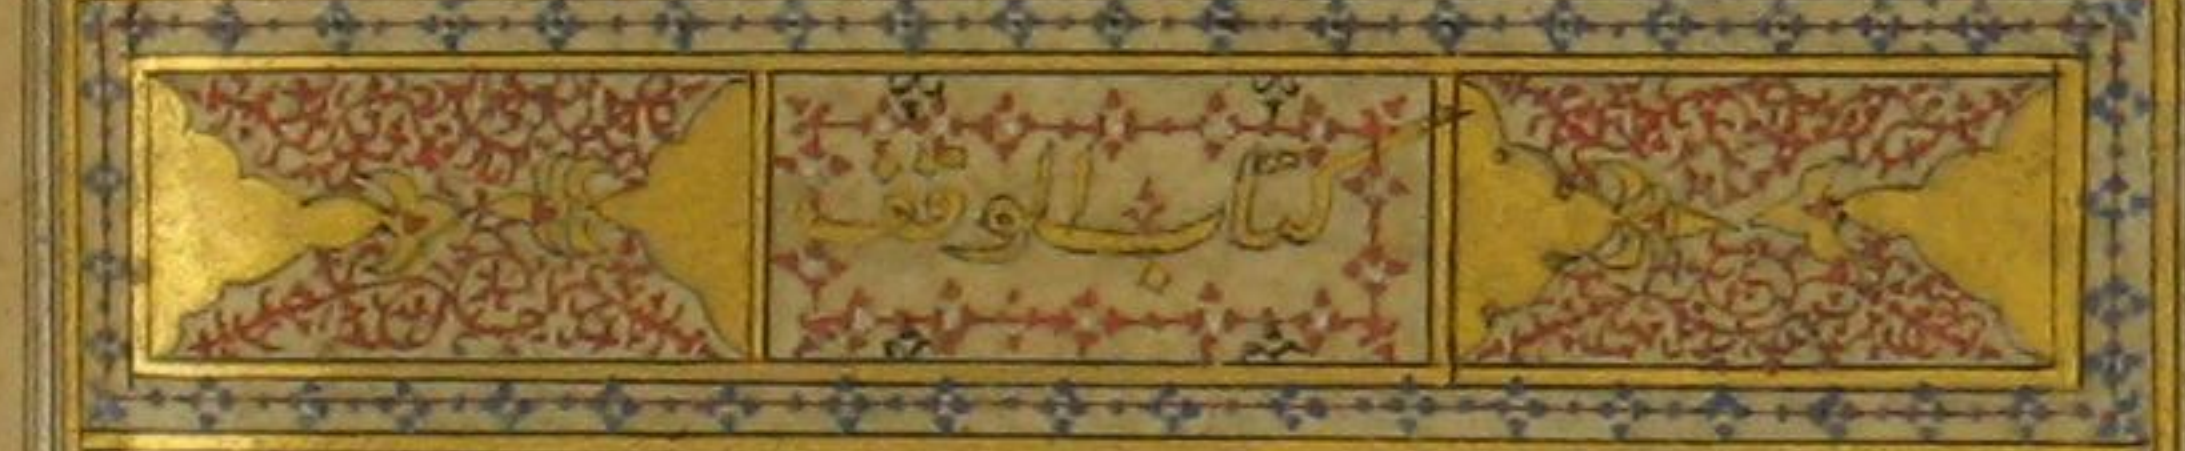 كتاب الوقف